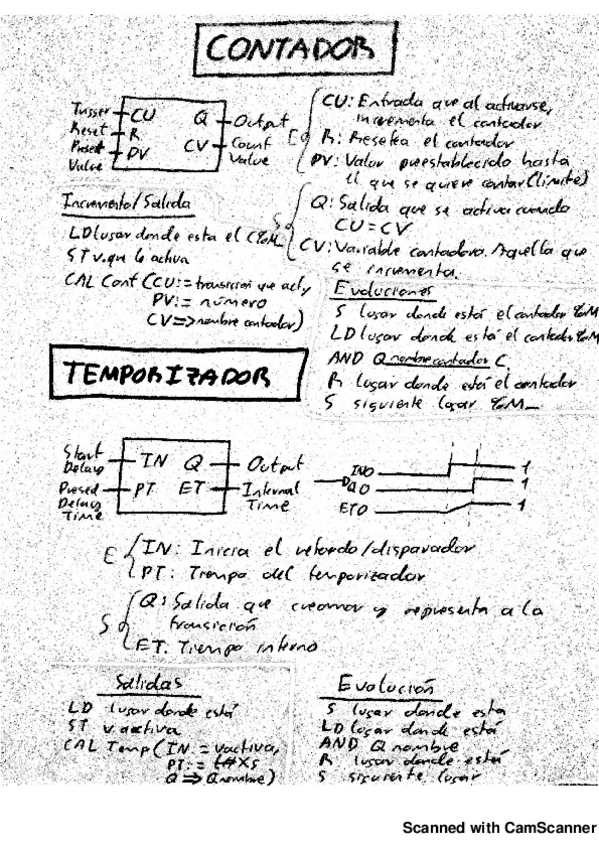 CONTADOR
Trigger CU Q Output
Reset R CV Count Value
Preset Value PV
E
CU: Entrada que al activarse,
incrementa el contador
R: Resetea el contador
PV: Valor preestablecido hasta
el que se quiere contar (límite)
S
Q: Salida que se activa cuando
CU=CV
CV: Variable contadora. Aquella que
se incrementa.
Incremento/Salida
LD lugar donde esta el C %M
ST v. que lo activa
CAL Cont (CU:= transición que act,
PV:= número
CV=> nombre contador)
Evoluciones
S lugar donde está el contador %M
LD lugar donde está el contador %M
AND Q nombre contador C
R lugar donde está el contador
S siguiente lugar %M_
TEMPORIZADOR
Start Delay IN Q Output
Presed Delay Time PT ET Internal Time
IN 0 1
Q 0 1
ET 0 1
E
IN: Inicia el retardo/disparador
PT: Tiempo del temporizador
S
Q: Salida que creamos y representa a la
transición
ET: Tiempo interno
Salidas
LD lugar donde está
ST v. activa
CAL Temp (IN = vactiva,
PT:= t#Xs
Q => Qnombre)
Evolución
S lugar donde esta
LD lugar donde está
AND Q nombre
R lugar donde está
S siguiente lugar
Scanned with CamScanner